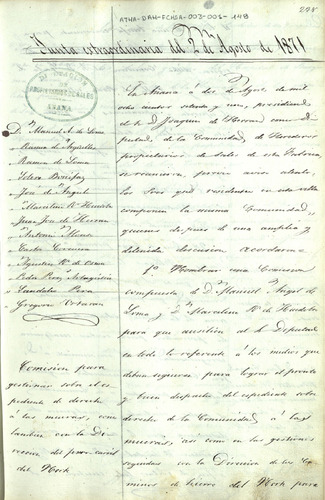 298
ATHA-DAH-FCHSA-003-003-148
Junta extraordinaria del 2 de Agosto de 1871
AÑANA
D. Manuel A. de Loma
Ramon de Argüelles
Ramon de Loma
José de Angulo
Marcelino R. de Huidobro
Juan José de Herran
Antonio
Castor
Agustin R. de
Pedro Ruiz
Candelas Pera
Gregorio
Comision para
gestionar sobre el es
pediente de derecho
á las mueras, como
tambien con la Di
reccion del ferro-carril
del North
En Añana á dos de Agosto de mil
ocho cientos setenta y uno, presididos
de D. Joaquin de Herran como di
putado, de la Comunidad de Herederos
propietarios de Sales de esta
se reunieron previo aviso atento,
los Sres que residentes en esta villa
componen la misma Comunidad,
quienes despues de una amplia y
detenida discusion acordaron
1º Nombrar una Comision
compuesta de D. Manuel Angel de
Loma y D. Marcelino R. de Huidobro
para que auxilien al S. Diputado
en todo lo referente á los medios que
deban seguirse para lograr el pronto
y buen despacho del espediente sobre
derecho de la Comunidad á las
muerias, asi como en las gestiones
seguidas con la Direccion de los Ca
minos de hierro del North para